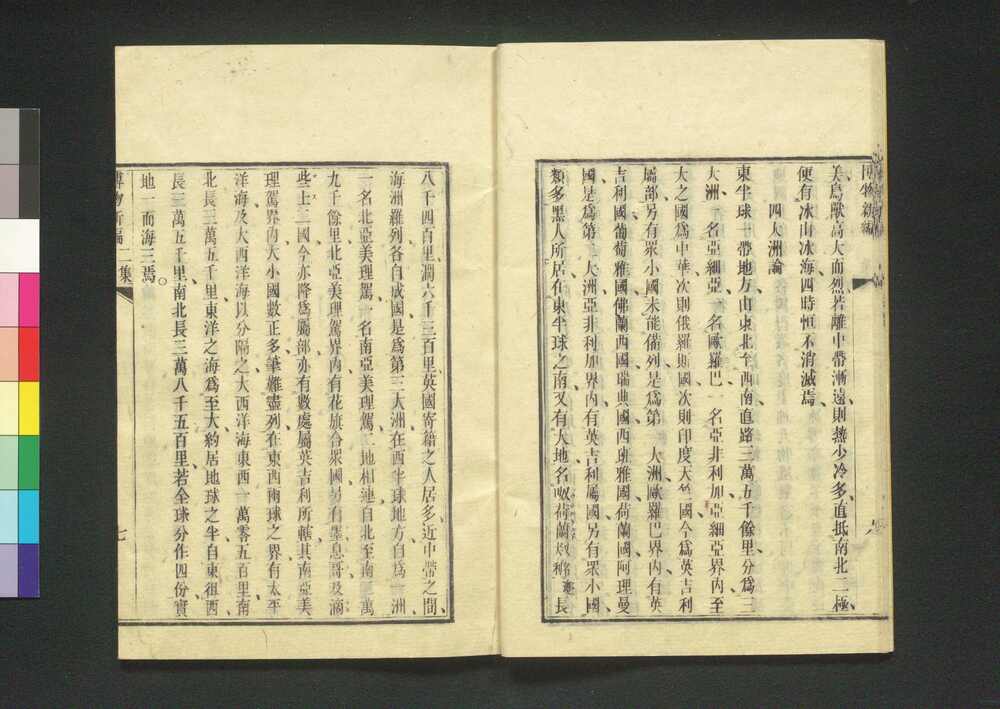 博物新編
美鳥獸高大而烈若離中帶漸遠則熱少冷多直抵南北二極
便有冰山冰海四時恒不消滅焉
四大洲論
東半球一帶地方由東北至西南直路三萬五千餘里分爲三
大洲一名亞細亞一名歐羅巴一名亞非利加亞細亞界內至
大之國爲中華次則俄羅斯國次則印度天竺國今爲英吉利
屬部另有眾小國未能備列是爲第一大洲歐羅巴界內有英
吉利國葡萄雅國佛蘭西國瑞典國西班雅國荷蘭國阿理曼
國是爲第二大洲亞非利加界內有英吉利屬國另有眾小國
類多黑人所居在東半球之南又有大地名荷蘭長
八千四百里濶六千三百里英國寄籍之人居多近中帶之間
海洲羅列各自成國是爲第三大洲在西半球地方自爲一洲
一名北亞美理駕一名南亞美理駕二地相連自北至南三萬
九千餘里北亞美理駕界內有花旗合眾國另有墨息哥及滴
些土二國今亦降爲屬部亦有數處屬英吉利所轄其南亞美
理駕界內大小國數正多筆難盡列在東西兩球之界有太平
洋海及大西洋海以分隔之大西洋海東西一萬零五百里南
北長三萬五千里東洋之海爲至大約居地球之半自東徂西
長三萬五千里南北長三萬八千五百里若全球分作四份實
地一而海三焉
博物新編二集
七